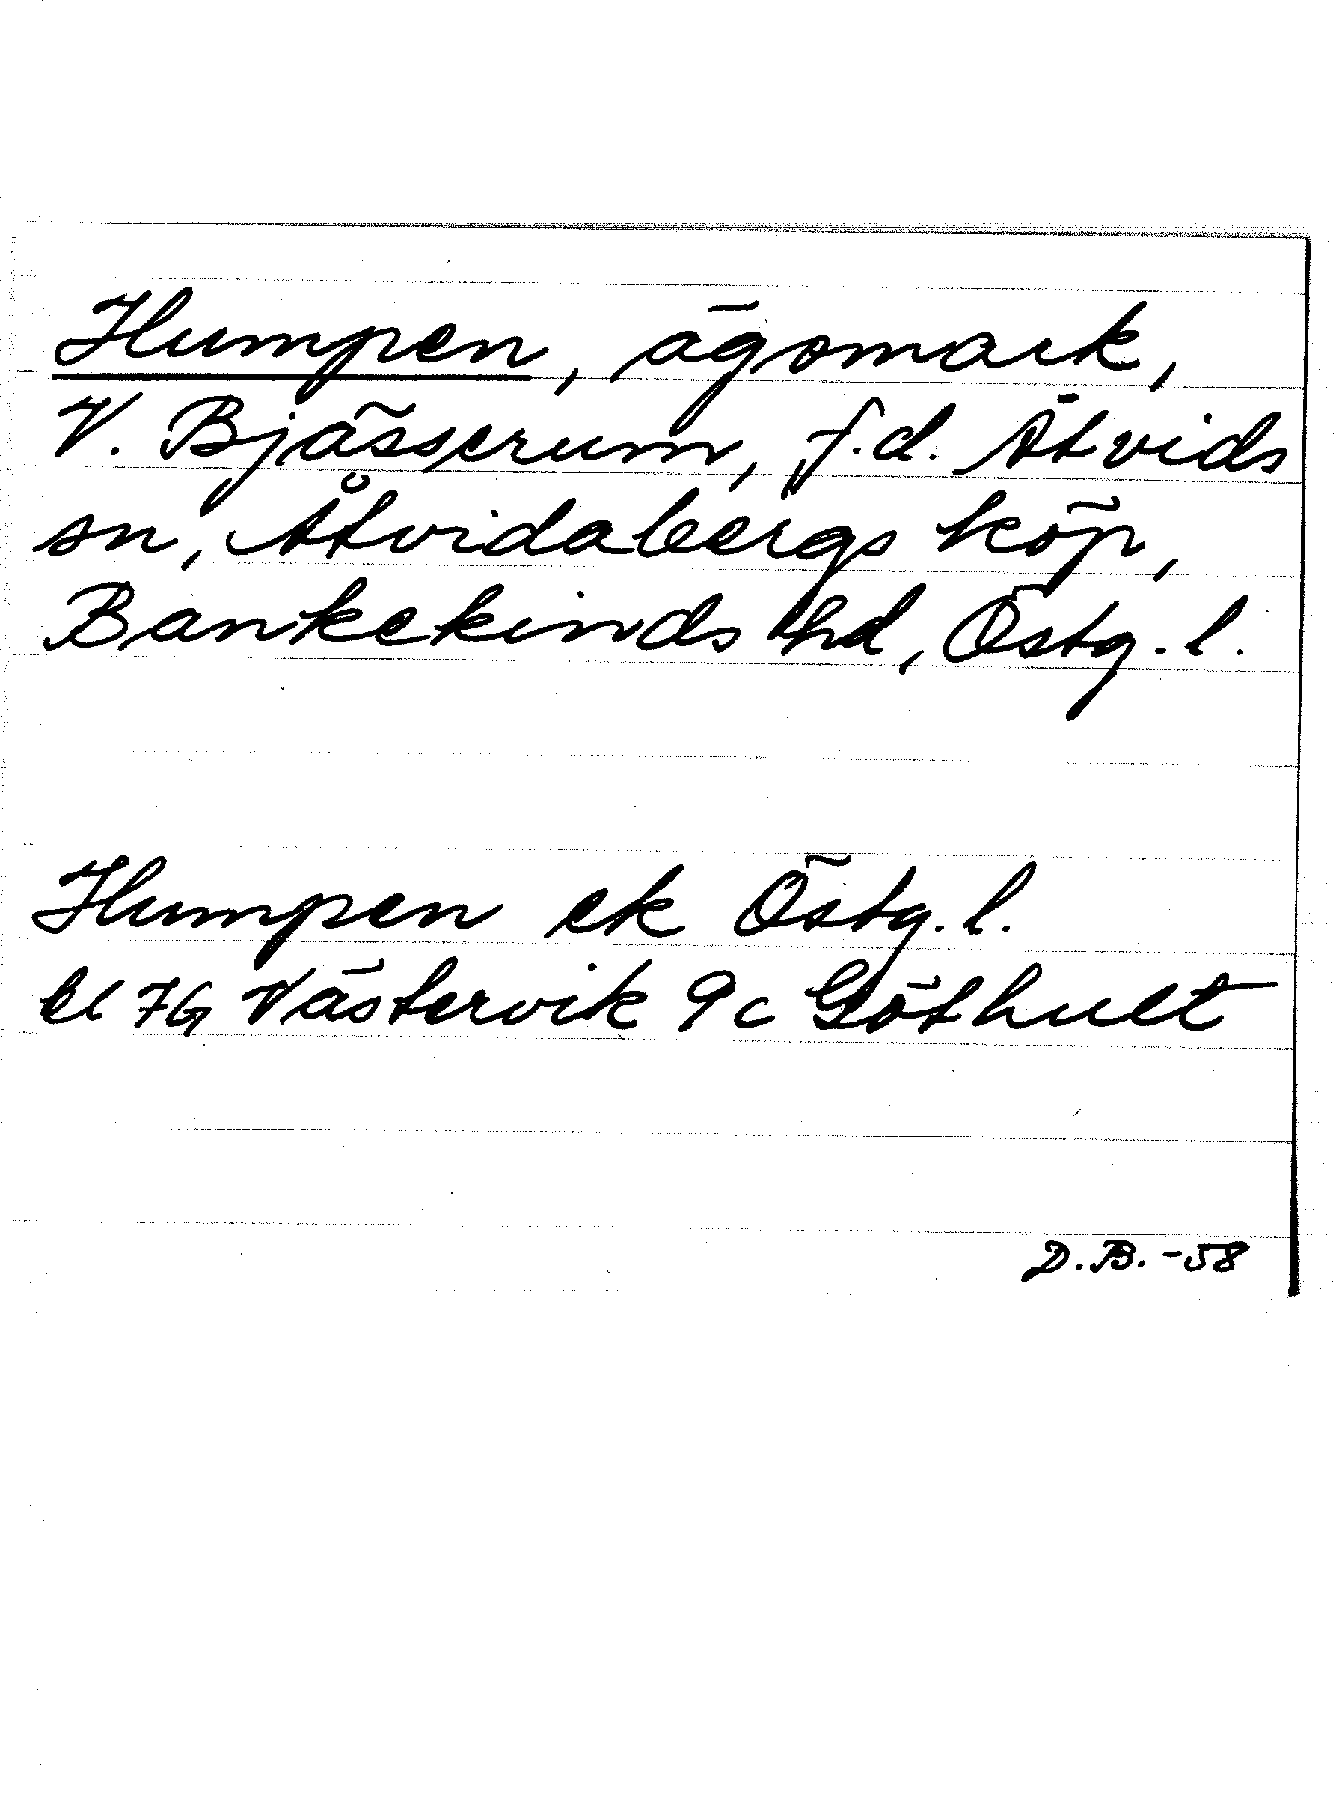 Humpen, ägomark,
V. Bjässerum, f.d. Åtvids
sn, Åtvidabergs köp,
Bankekinds hd, Östg. l.
Humpen ek Östg. l.
bl 7G Västervik 9c Göthult
D.B. -58